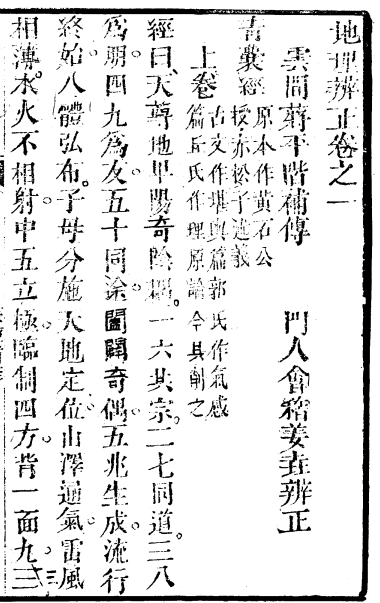 地理辨正卷之一
雲間蔣平階補傳　門人會稽姜垚辨正
青囊經
原本作黃石公
授赤松子述義
上卷
古文作堪輿篇郭氏作氣感
篇丘氏作理原論今具削之
經曰天尊地卑陽奇陰耦。一六共宗。二七同道。三八
爲朋。四九爲友。五十同途。闔闢奇偶。五兆生成。流行
終始。八體弘布。子母分施。天地定位。山澤通氣。雷風
相薄。水火不相射。中五立極。臨制四方。背一面九。三